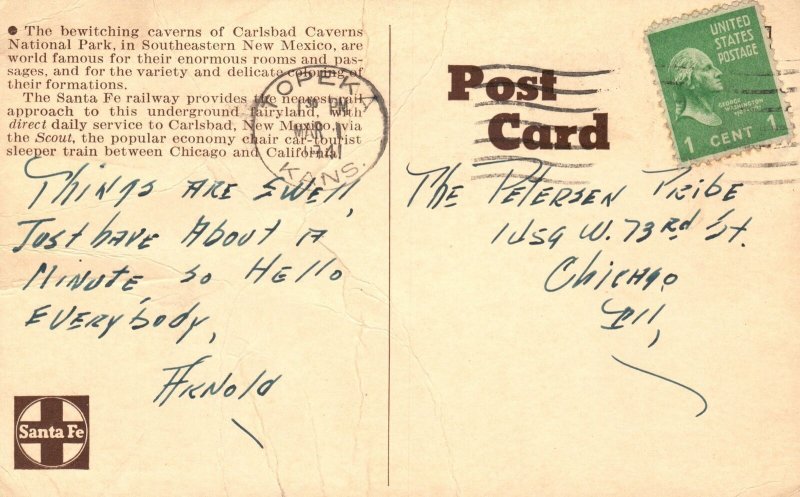 The bewitching caverns of Carlsbad Caverns
National Park, in Southeastern New Mexico, are
world famous for their enormous rooms and pas-
sages, and for the variety and delicate coloring of
their formations.
The Santa Fe railway provides the nearest rail
approach to this underground fairyland, with
direct daily service to Carlsbad, New Mexico, via
the Scout, the popular economy chair car-tourist
sleeper train between Chicago and California.
KOPEKA
PM
MAR 1
1941
KANS.
Things are swell,
Just have about a
minute, so hello
everybody,
Arnold
Santa Fe
Post
Card
UNITED
STATES
POSTAGE
GEORGE
WASHINGTON
1 CENT 1
The Petersen Tribe
1459 W. 73rd St.
Chicago
Ill,